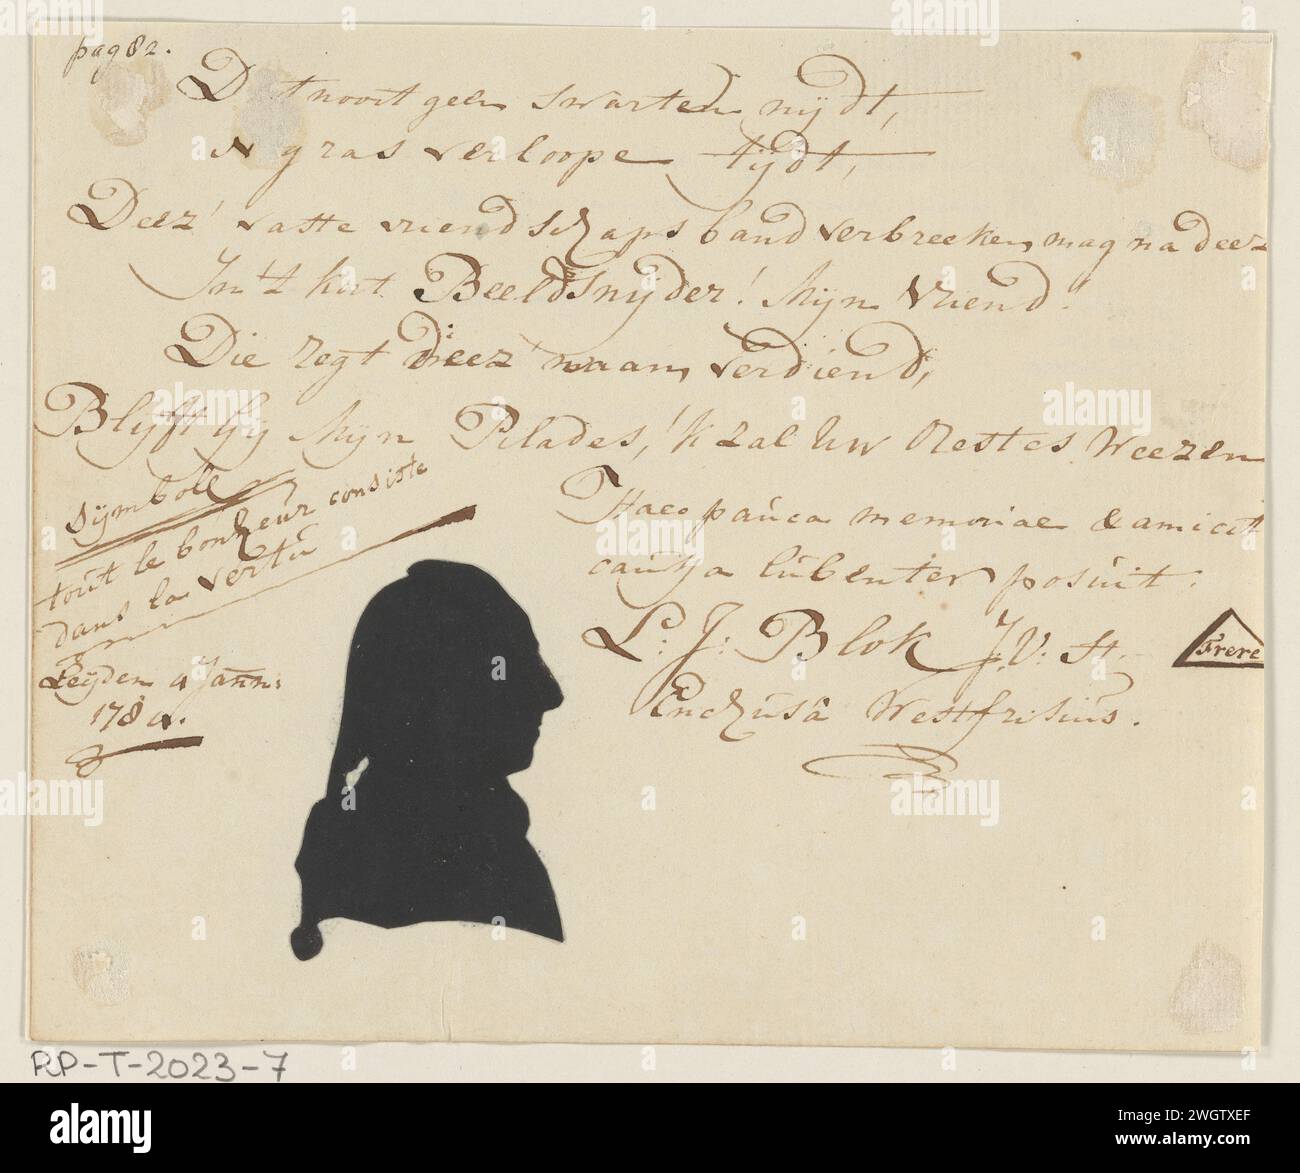 pag 82.
Dat nooit geen swarten nijdt,
N gras verloope tijdt,
Deez' vaste vriendschaps band verbreeken mag na deez
In 't hert Beeldsnyder! Mijn Vriend!
Die regt deez' naam verdiend,
Blyft Gy Mijn Pilades, 'k zal Uw Orestes Weezen
Symbole
tout le bonheur consiste
dans la vertu
Leyden 4 Jann:
1784.
Haec pauca memoriae & amicit
causa lubenter posuit.
L: J: Blok J. V: St.
Enchusâ Westfrisius.
Frere
RP-T-2023-7
alamy
Image ID: 2WGTXEF
www.alamy.com